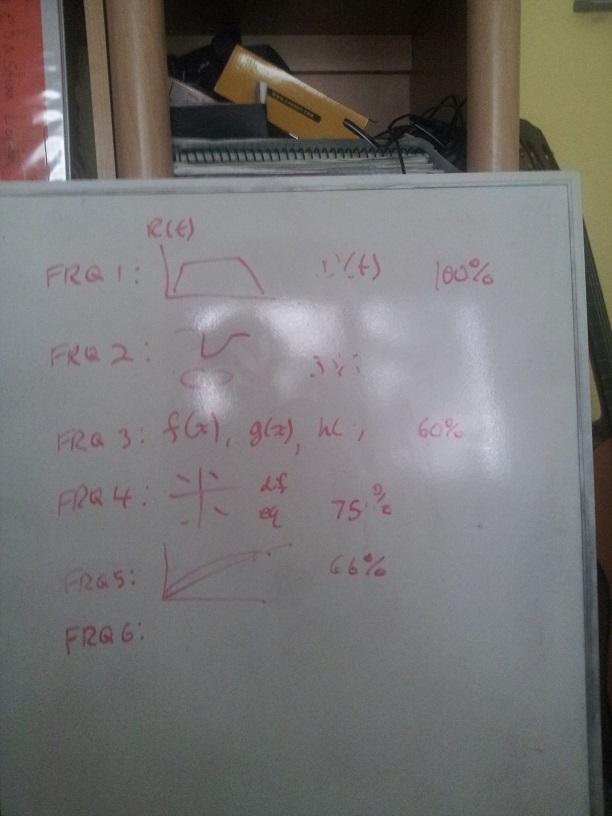 R(t)
FRQ 1: (t) 100%
FRQ 2:
FRQ 3: f(x), g(x), h( , 60%
FRQ 4: df 75%
eq
FRQ5: 66%
FRQ6: